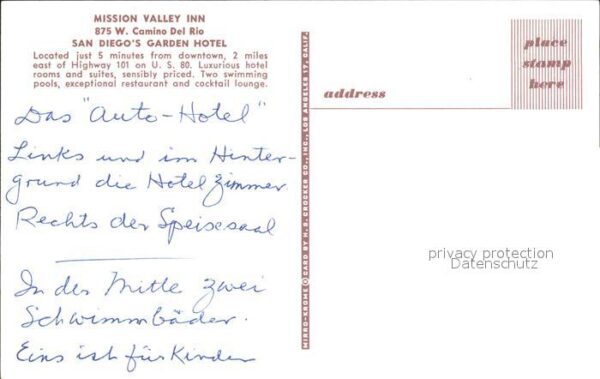 MISSION VALLEY INN
875 W. Camino Del Rio
SAN DIEGO'S GARDEN HOTEL
Located just 5 minutes from downtown, 2 miles
east of Highway 101 on U. S. 80. Luxurious hotel
rooms and suites, sensibly priced. Two swimming
pools, exceptional restaurant and cocktail lounge.
Das "Auto-Hotel"
Links und im Hinter-
grund die Hotelzimmer
Rechts der Speisesaal
In der Mitte zwei
Schwimmbäder.
Eins ist für Kinder
MIRRO-KROME ® CARD BY H. S. CROCKER CO., INC., LOS ANGELES 17, CALIF.
address
place
stamp
here
privacy protection
Datenschutz